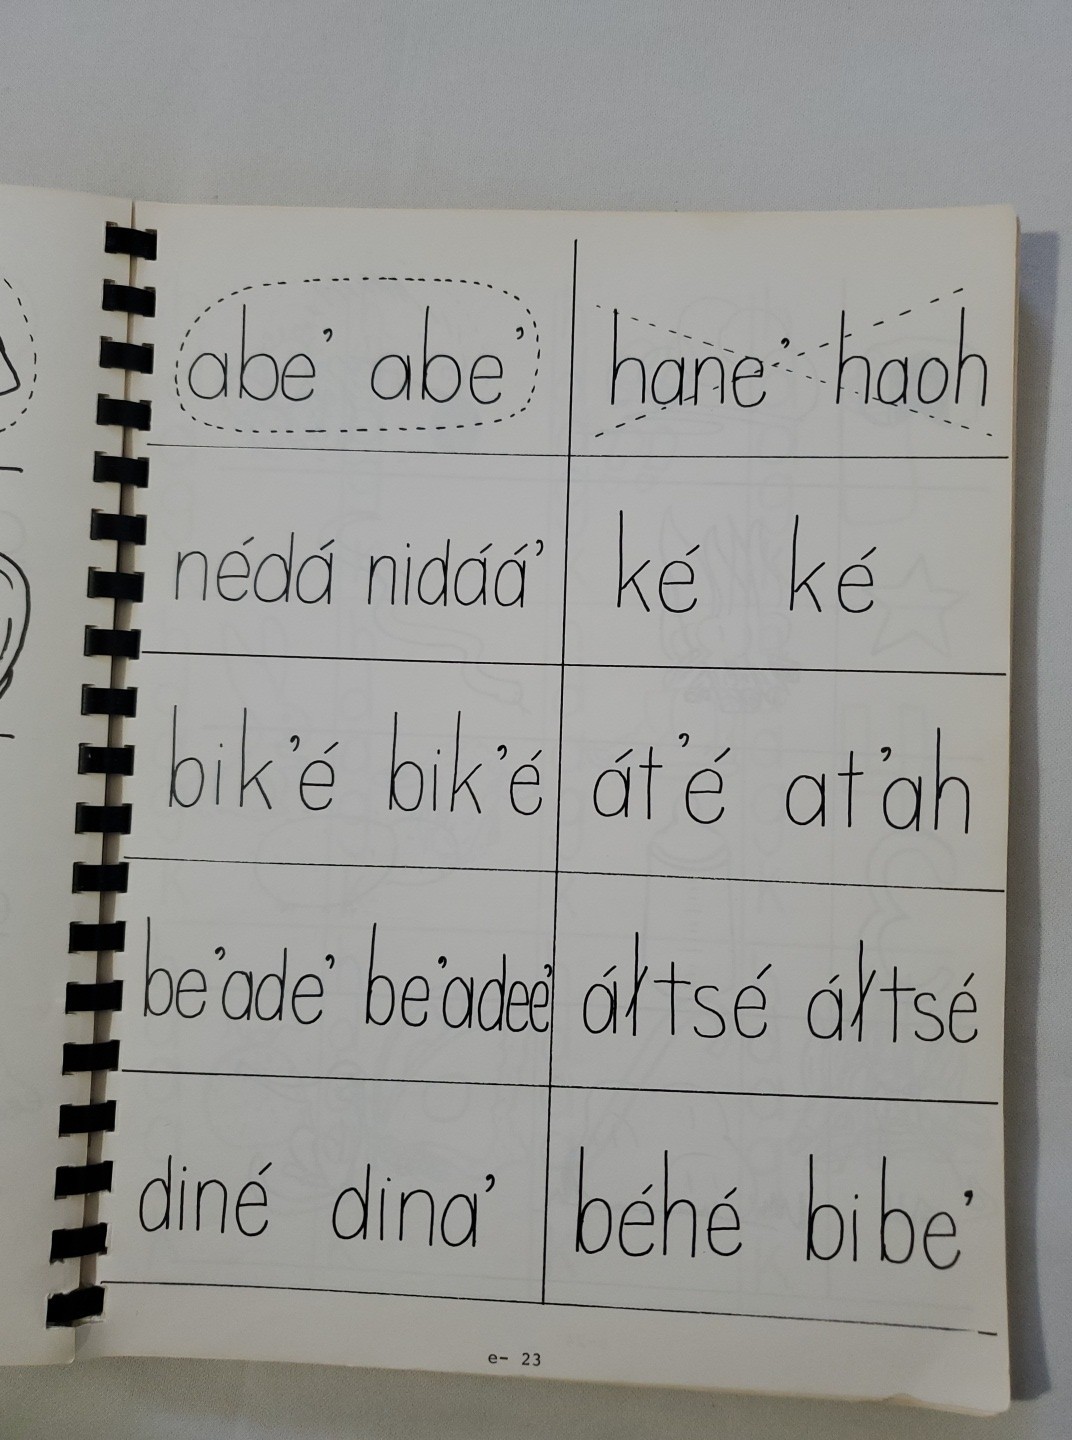 abe' abe' hane' haoh
nédá nidáá' ké ké
bik'é bik'é át'é at'ah
be'ade' be'adee' áłtsé áłtsé
diné dina' béhé bibe'
e- 23